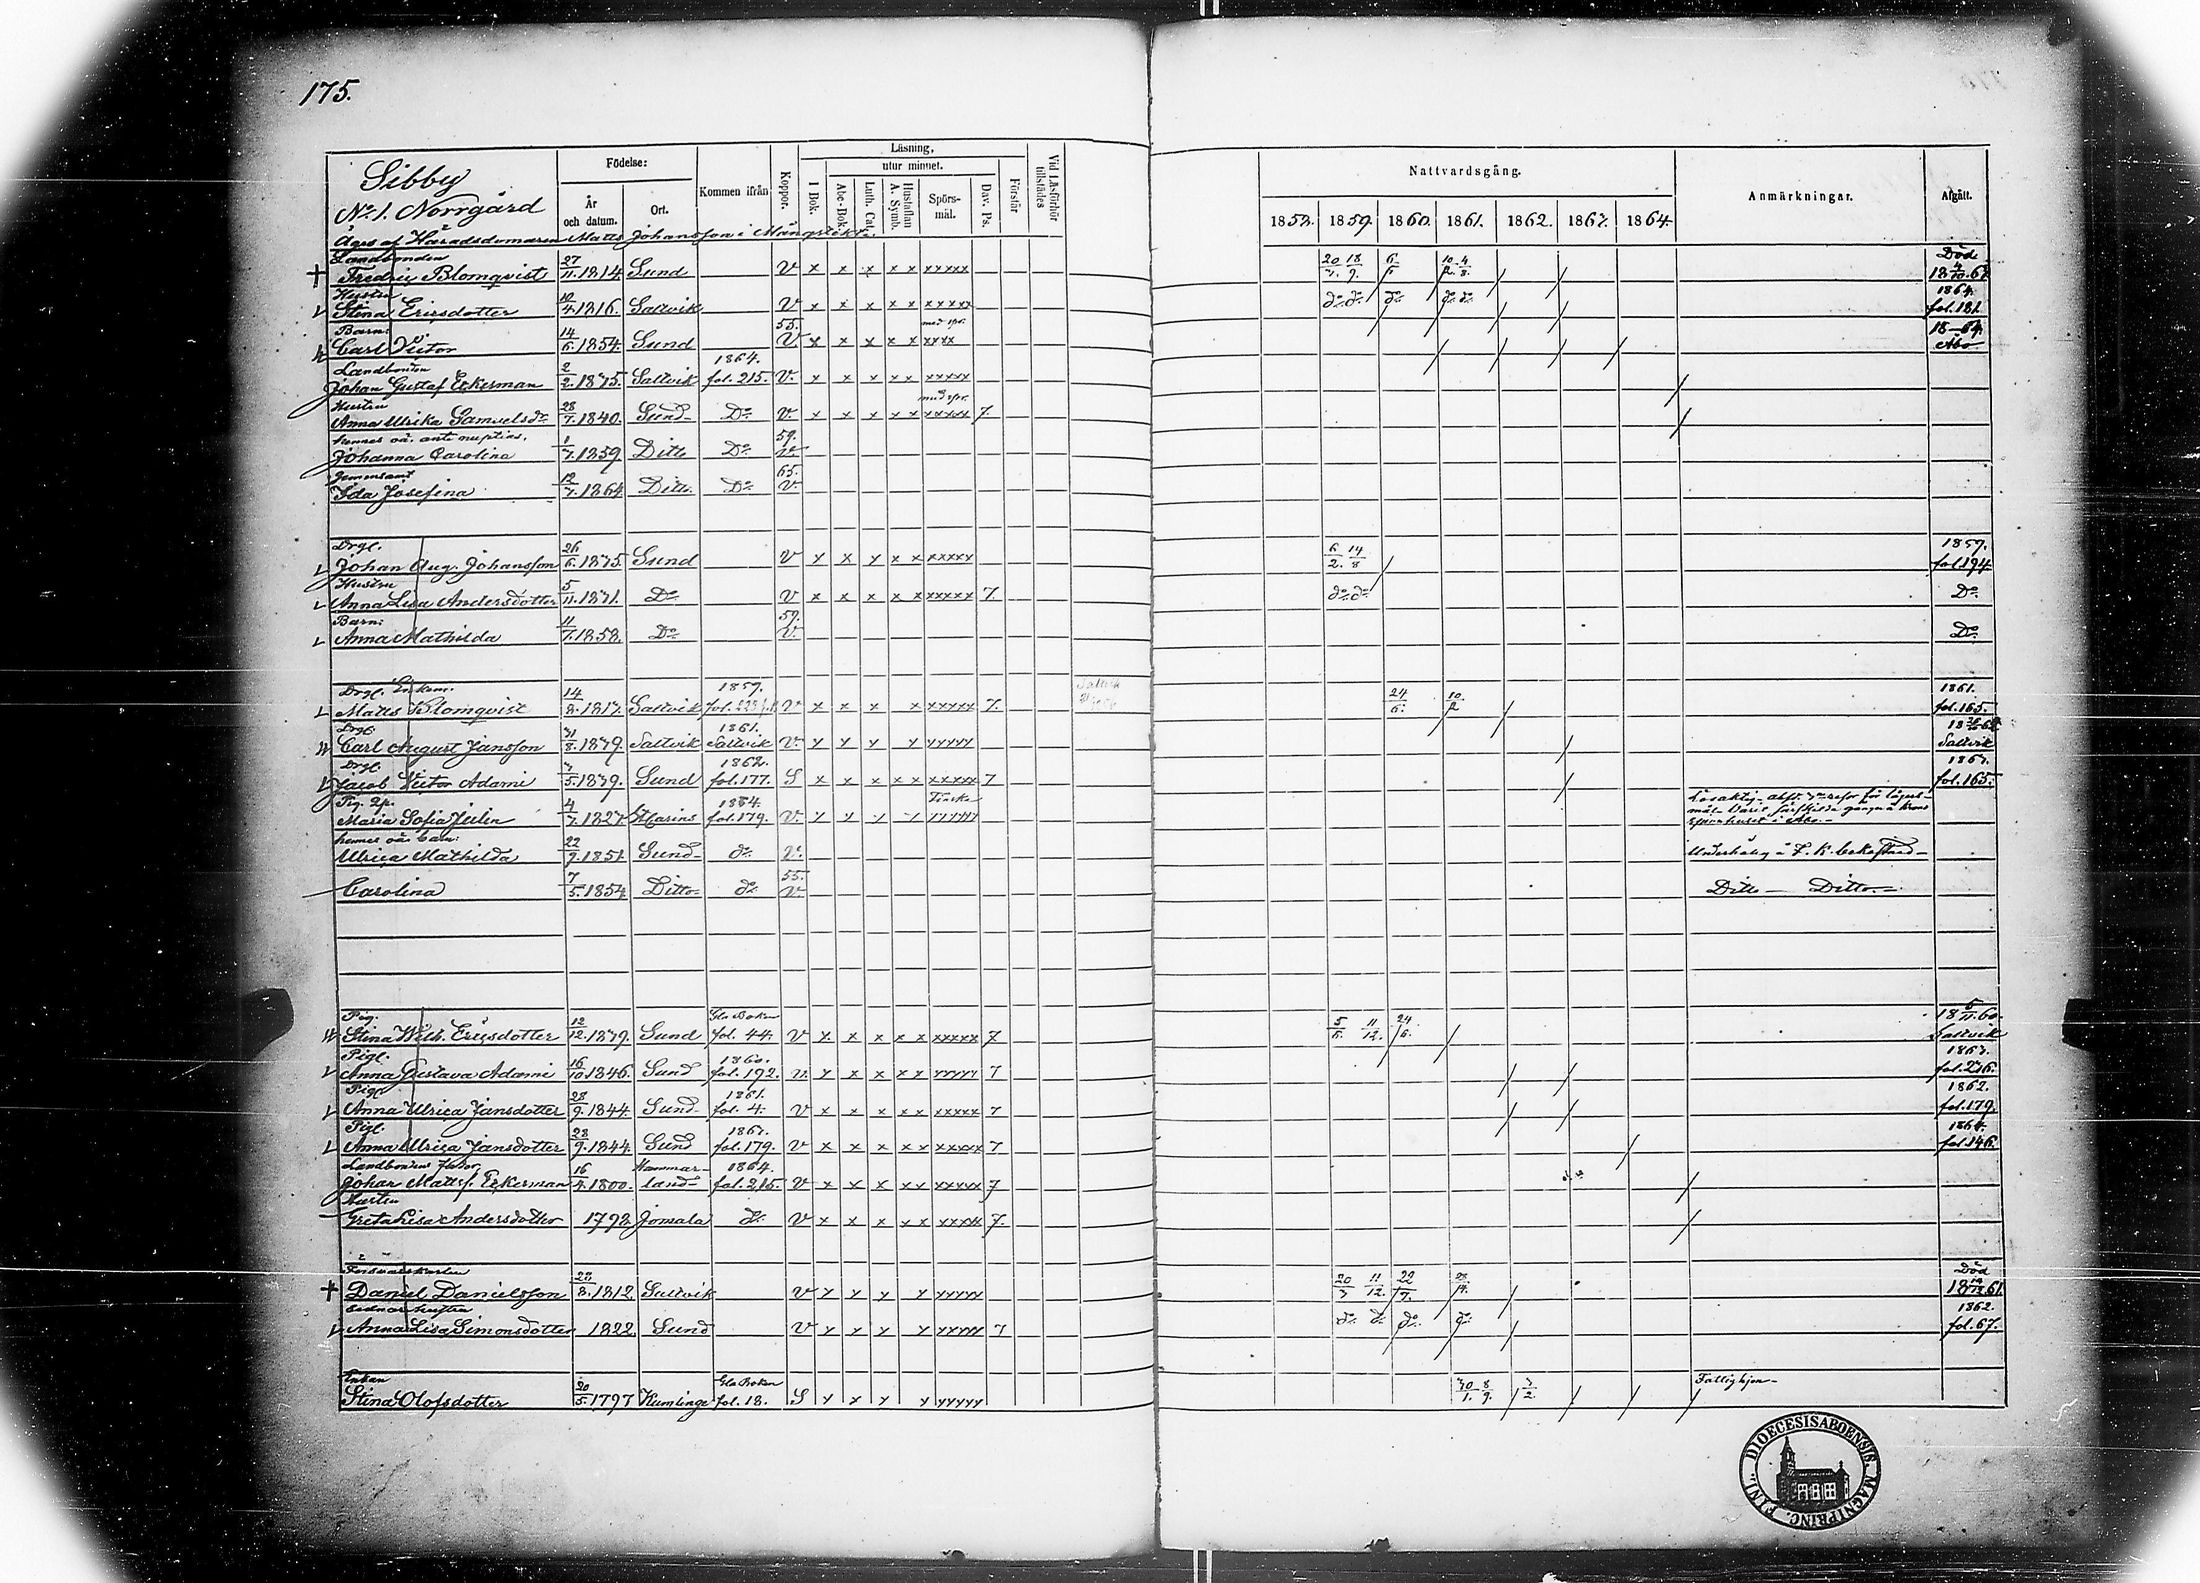 175.
Sibby
No 1. Norrgård
Äges af Häradsdomaren Matts Johansson i Mångstekta.
Födelse:
År och datum.
Ort.
Kommen ifrån
Koppor.
Läsning,
utur minnet.
I Bok.
Abc-Bok.
Luth. Cat.
Hustaflan A. Symb.
Spörs-mål.
Dav. Ps.
Förstår
Vid Läsförhör tillstädes
Nattvardsgång.
1858. 1859. 1860. 1861. 1862. 1863. 1864.
Anmärkningar.
Afgått.
Landbonden Död
Fredric Blomqvist 27/11 1814. Sund V x x x x x xxxxx 20/3. 18/9. 10/2. 4/8.
Hustru 1864.
Stina Ericsdotter 10/4 1816. Saltvik V x x x x x xxxxx do. do. do. do. do. fol. 181.
Barn: 55. med spr. 18–64.
Carl Victor 14/6. 1854. Sund V. x x x x x xxxx Åbo
Landbonden 1864.
Johan Gustaf Eckerman 2/2. 1835. Saltvik fol. 215. V. x x x x x xxxxx
Hustru med spr.
Anna Ulrika Samuelsdr 28/7. 1840. Sund Do. V. x x x x x xxxxx 7.
hennes oä. ante nuptias. 59.
Johanna Carolina 1/7. 1859 Ditto Do. V.
gemensamt 65.
Ida Josefina 12/7. 1864. Ditto. Do. V.
Drgl. 1859.
Johan Aug. Johansson 26/6. 1835. Sund V x x x x x xxxxx 6/2. 14/8 fol. 194.
Hustru
Anna Lisa Andersdotter 5/11. 1831. Do. V x x x x x xxxxx 7. do. do. Do.
Barn: 59.
Anna Mathilda 11/7. 1858. Do. V. Do.
Drgl. Enkom. 1859. 1861.
Matts Blomqvist 14/2. 1817. Saltvik V x x x x xxxxx 7. 24/6. 10/2 fol. 165.
Drgl. 1861.
Carl August Jansson 31/8. 1839. Saltvik Saltvik V. x x x x xxxxx Saltvik
Drgl. 1862. 1863.
Jacob Victor Adami 3/5. 1839. Sund fol. 177. S x x x x x xxxxx 7 fol. 165.
Pig. 2fr. 1864. Finska
Maria Sofia Jirlin 4/7. 1827 fol. 179. V. x x x x xxxxx
hennes oä. barn:
Ulrica Mathilda 22/9. 1851. Sund do. V. Underhålles å F. K. bekostnad
55.
Carolina 7/5. 1854. Ditto do. V. Ditto – Ditto. –
Pig. Gla Boken 18 5/11. 60.
Stina Wilh. Ericsdotter 12/12. 1839. Sund fol. 44. V x. x x x x xxxxx 7 5/6. 11/12. 24/6. Saltvik
Pigl. 1860. 1863.
Anna Gustava Adami 16/10. 1846. Sund fol. 192. V. x x x x x xxxxx 7 fol. 216.
Pigl. 1861. 1862.
Anna Ulrica Jansdotter 28/9. 1844. Sund fol. 4. V x x x x x xxxxx 7 fol. 179.
Pigl. 1863. 1864.
Anna Ulrica Jansdotter 28/9. 1844. Sund fol. 179. V x x x x x xxxxx 7 fol. 146.
Landbondens fader Hammar- 1864.
Johan Mattsf. Eckerman 16/4. 1800. land fol. 215. V x x x x x xxxxx 7
Hustru
Greta Lisa Andersdotter 1792 Jomala do. V x x x x x xxxxx 7.
Död
Daniel Danielsson 28/8. 1812. Saltvik V x x x x xxxxx 20/3 11/12. 22/7.
hustru 1862.
Anna Lisa Simonsdotter 1822. Sund V x x x x xxxxx 7 do. do. do. do. fol. 67.
Enkan Gla Boken Fattighjon
Stina Olofsdotter 20/5. 1797 Kumlinge fol. 18. S x x x x xxxxx 30/1. 8/9. 3/2.
FINL. DIOECESIS ABOENSIS. MAGNI PRINC.